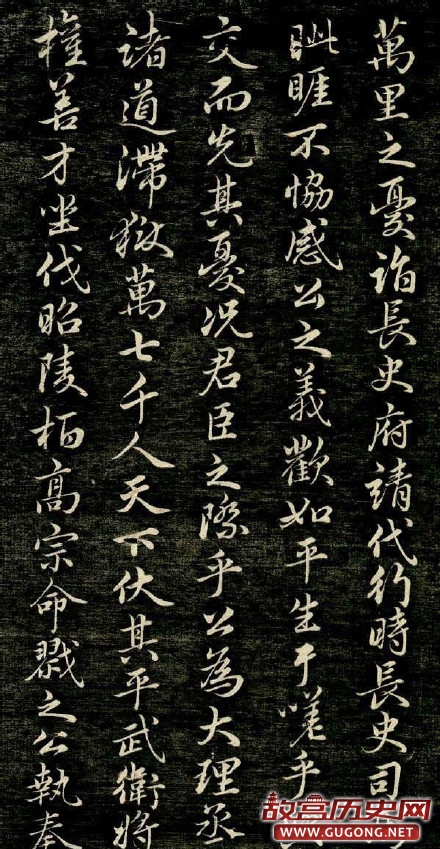 萬里之憂詣長史府請代行時長史司
眦睚不協感公之義歡如平生于嗟乎
交而先其憂况君臣之際乎公為大理丞
諸道滯獄萬七千人天下伏其平武衛將
權善才坐伐昭陵栢高宗命戮之公執奏
故宫历史网
WWW.GUGONG.NET